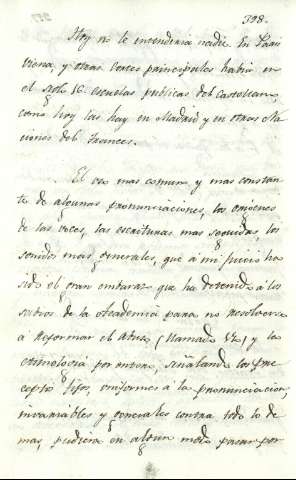 398.
Hoy no le entenderia nadie. En Paris
Viena, y otras Cortes principales habia en
el siglo 16. escuelas publicas del Castellano,
como hoy las hay en Madrid y en otras
del Frances.
El uso mas comun y mas constan
te de algunas pronunciaciones, los origenes
de las voces, las escrituras mas seguidas, los
sonidos mas generales, que á mi juicio ha
sido el gran embarazo que ha detenido á los
sabios de la Academia para no resolverse
á reformar el abuso (llamado Uso) y la
etimologia por autora, señalando los pre
ceptos fijos, uniformes á la pronunciacion,
invariables y generales contra todo lo de
mas, pudiera en algun modo pasar por